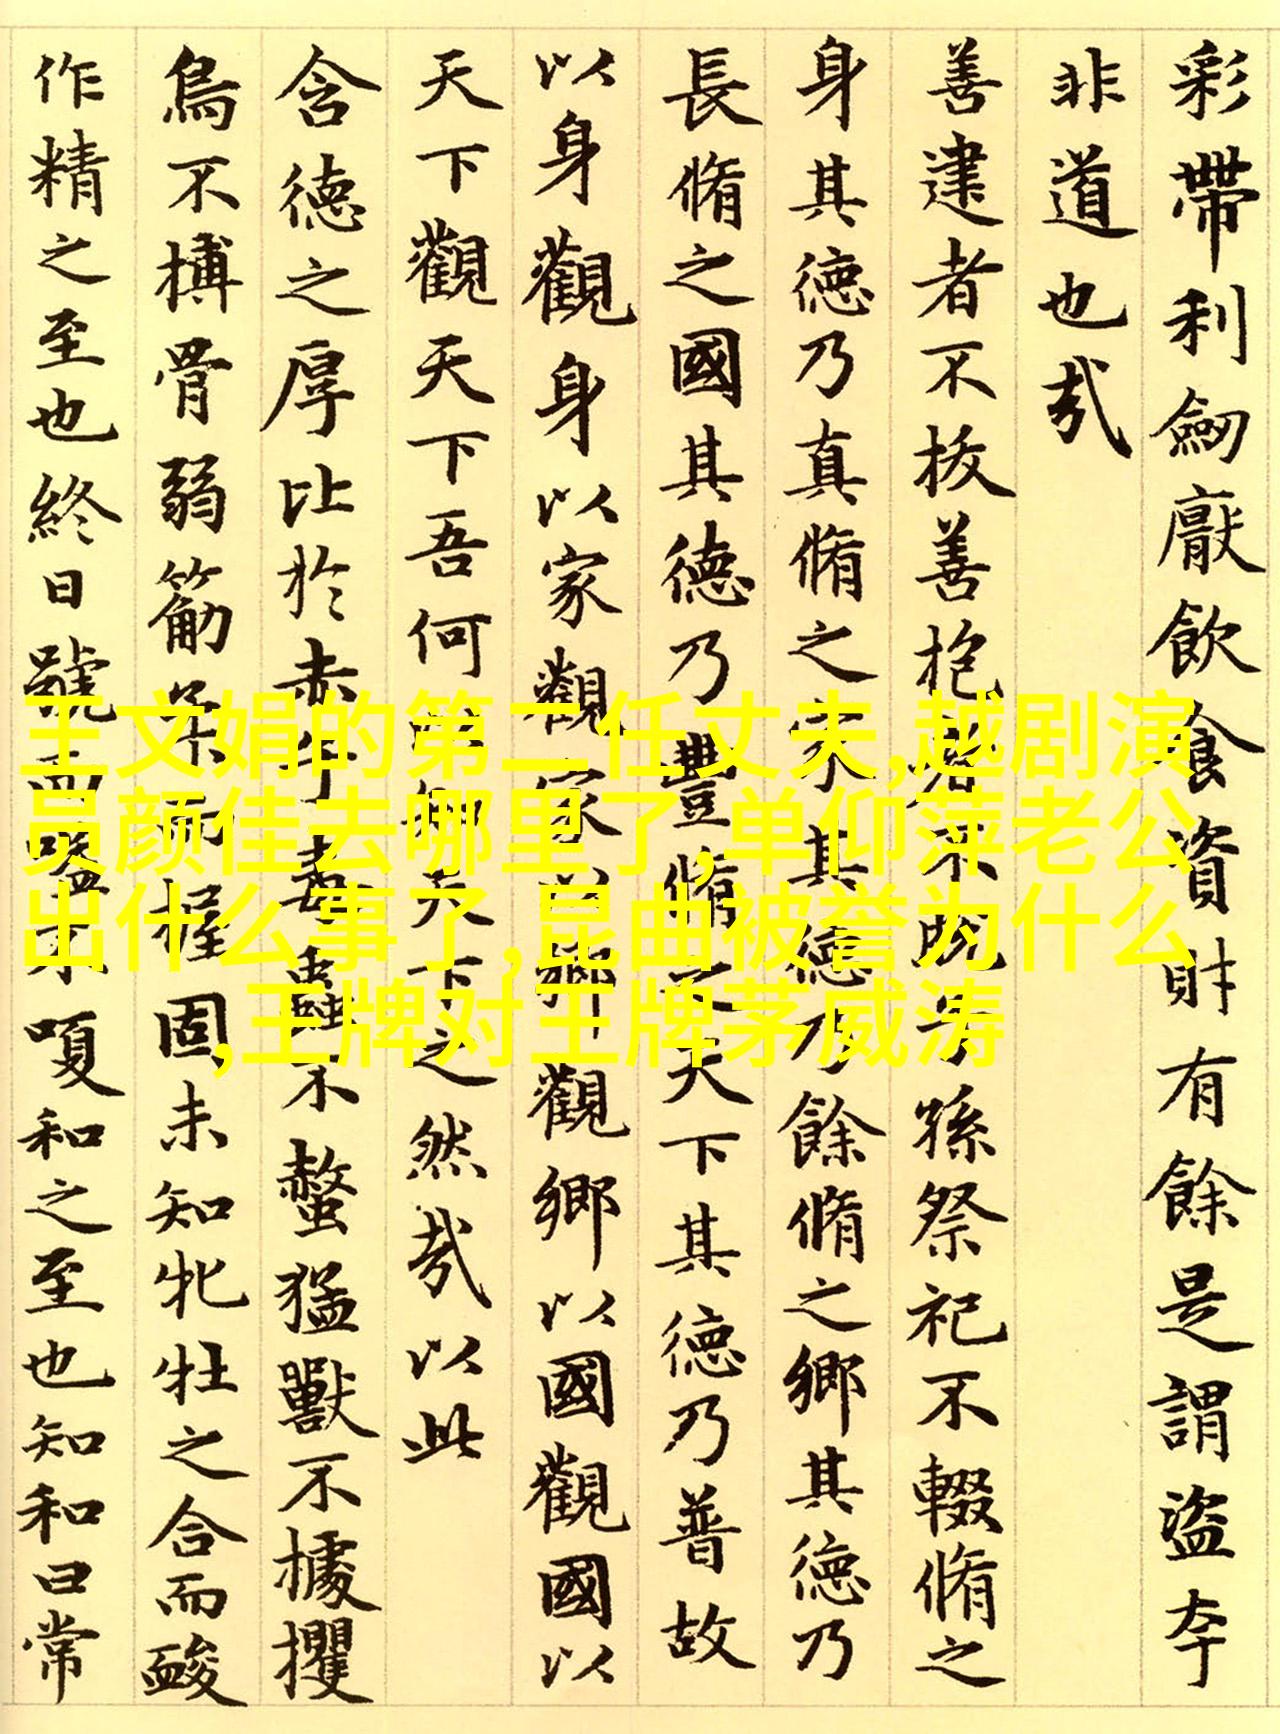 彩帶利劒厭飲食資財有餘是謂盗夸
非道也㢤
善建者不拔善抱者不脫子孫祭祀不輟脩之
身其德乃真脩之家其德乃餘脩之鄉其德乃
長脩之國其德乃豐脩之天下其德乃普故
以身觀身以家觀家以鄉觀鄉以國觀國以
天下觀天下吾何以知天下之然㢤以此
含德之厚比於赤子毒蟲不螫猛獸不據攫
鳥不搏骨弱筋柔而握固未知牝牡之合而酸
作精之至也終日號而嗌不嗄和之至也知和曰常
王文娟的第二任丈夫,越剧演
员颜佳去哪里了,单仰萍老公
出什么事了,昆曲被誉为什么
,王牌对王牌茅威涛